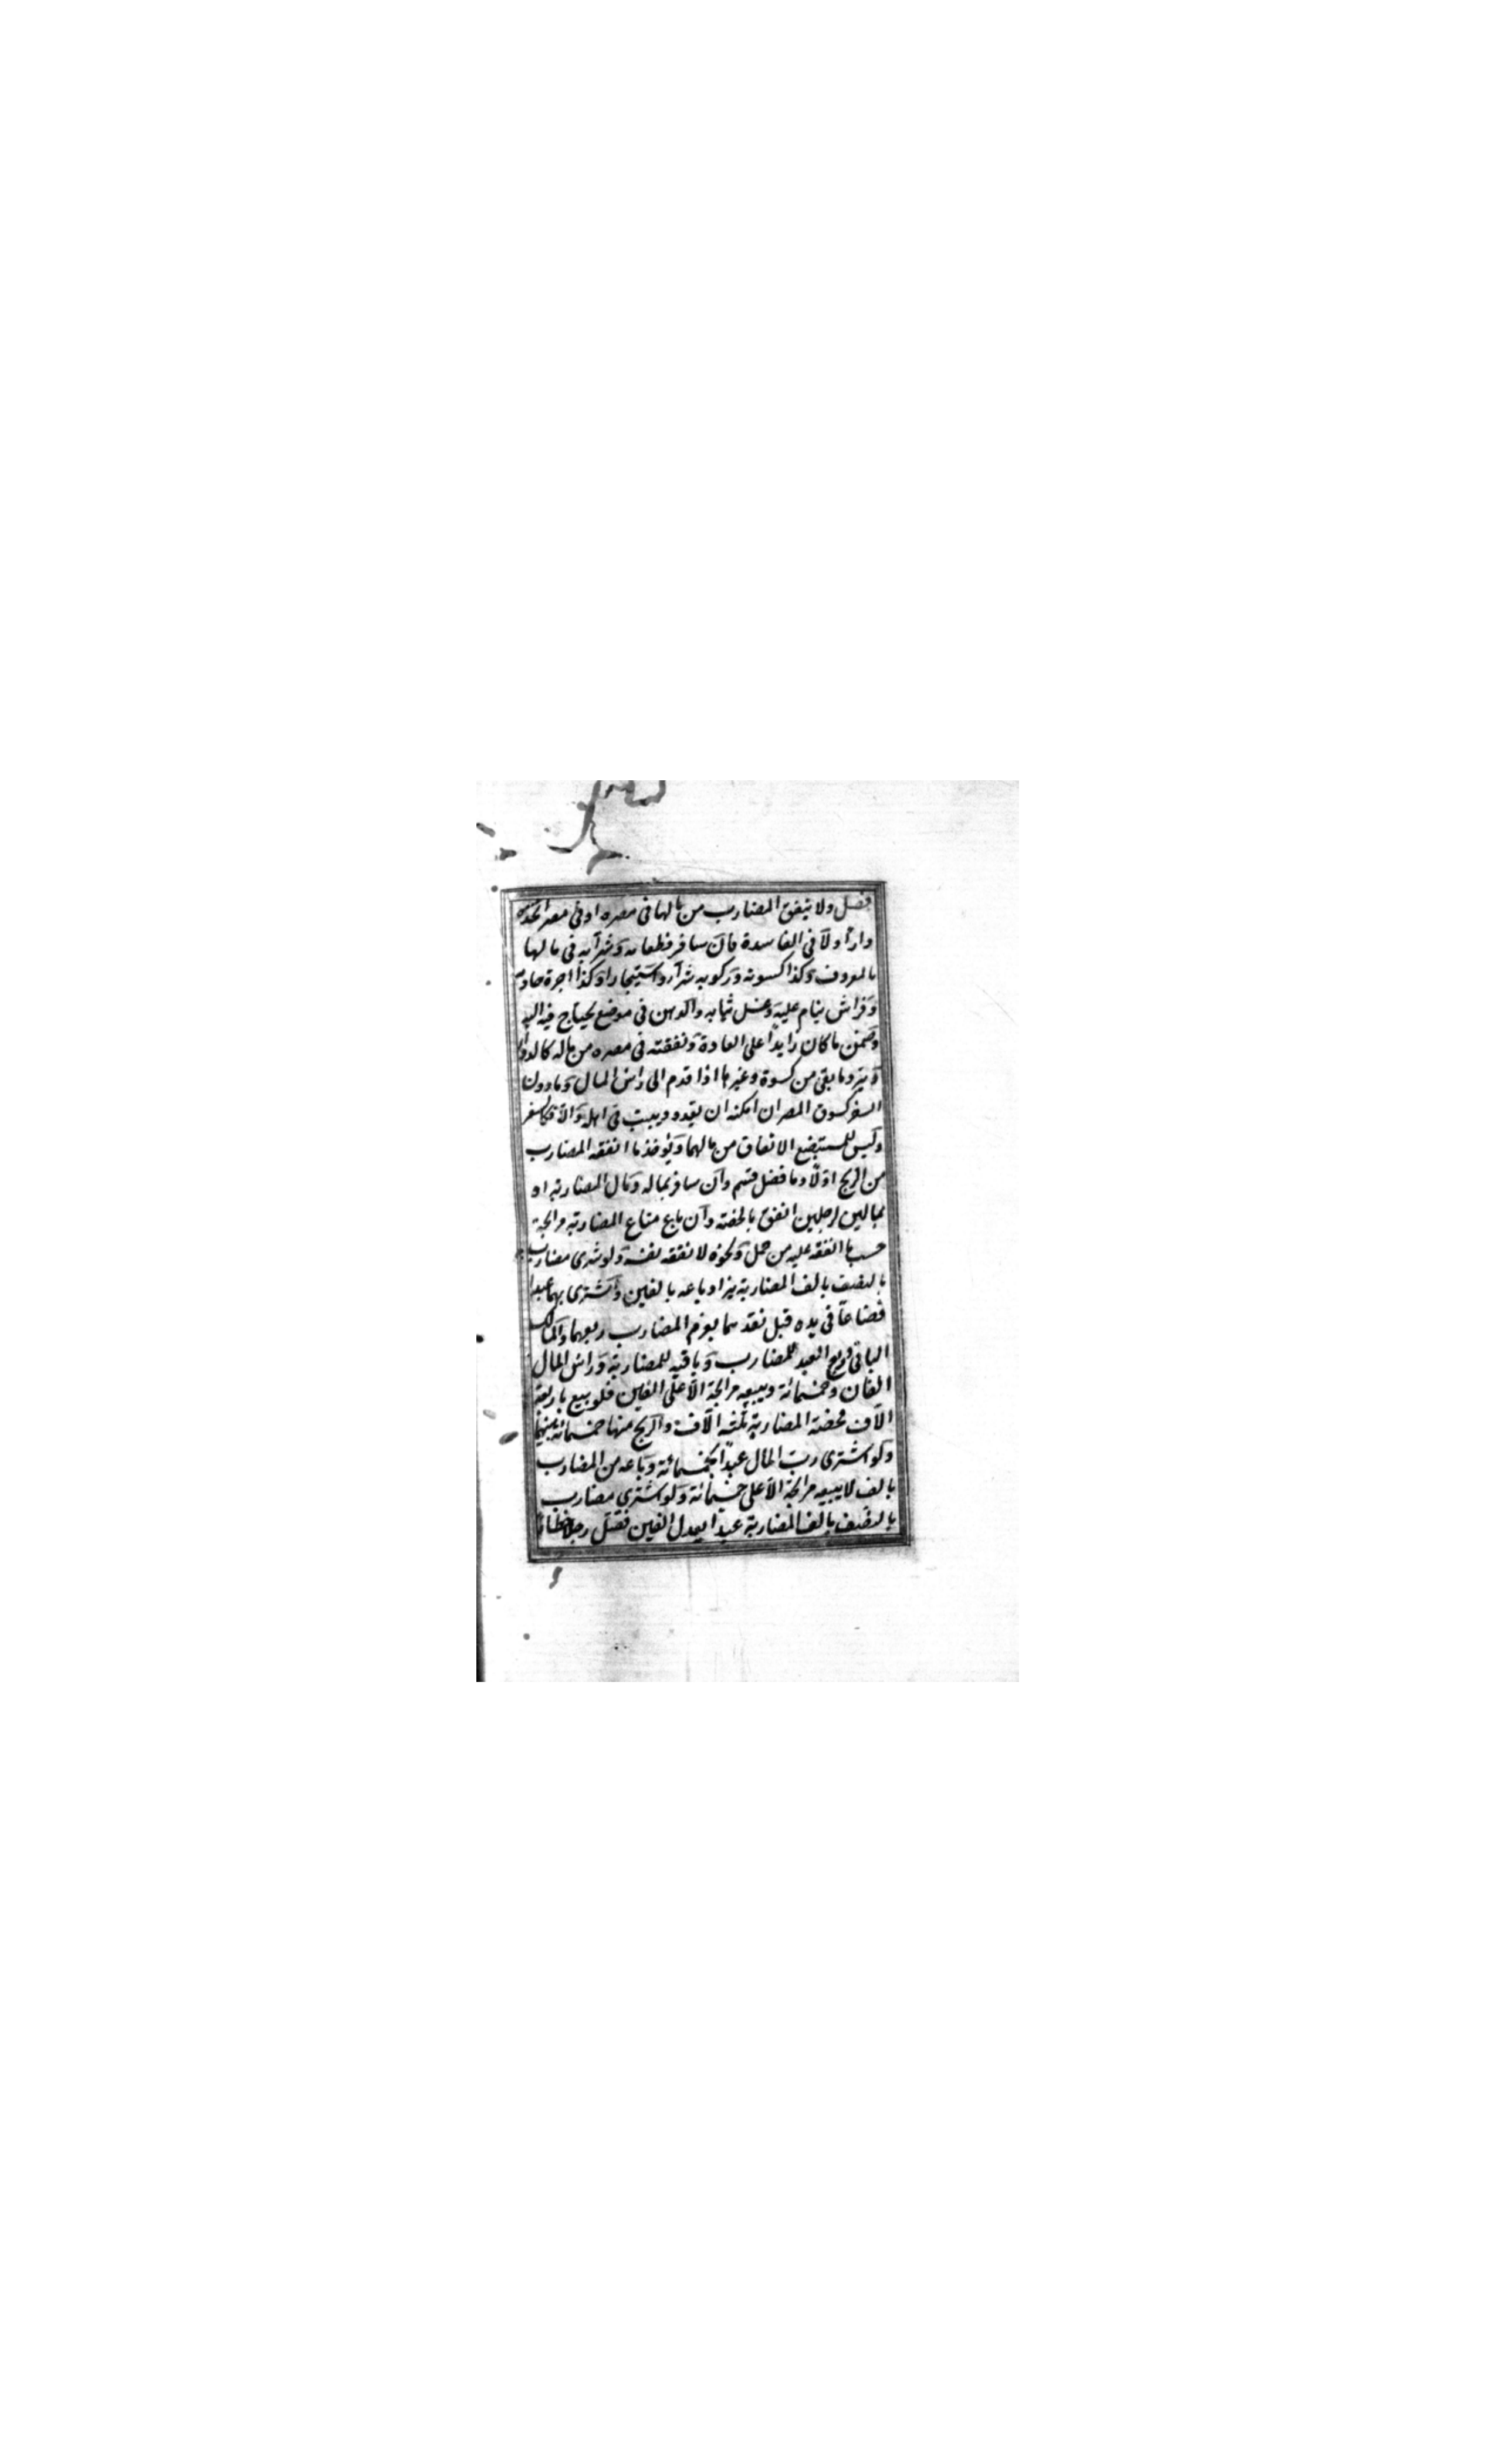 فصل ولا ينفق المضارب من مالها فى مصره او فى مصر اتخذه
دارا ولا فى الفاسدة فان سافر فطعامه وشرابه فى مالها
بالمعروف وكذا كسوته وركوبه شراء واستيجارا وكذا اجرة خادمه
وفراش ينام عليه وغسل ثيابه والدهن فى موضع يحتاج فيه اليه
وضمن ما كان زايدا على العادة ونفقته فى مصره من ماله كالدواء
ويرد ما بقى من كسوة وغيرها اذا قدم الى راس المال وما دون
السفر كسوق المصر ان امكنه ان يغدو ويبيت فى اهله والا فكالسفر
وليس للمستبضع الانفاق من مالها ويؤخذ ما انفقه المضارب
من الربح اولا وما فضل قسم وان سافر بماله ومال المضاربة او
بمالين لرجلين انفق بالحصة وان باع متاع المضاربة مرابحة
حسب ما انفقه عليه من حمل ونحوه لا نفقة نفسه ولو شرى مضارب
بالنصف بالف المضاربة بزا وباعه بالفين واشترى بهما عبدا
فضاعا فى يده قبل نقدهما يغرم المضارب ربعهما والمالك
الباقى وربع العبد للمضارب وباقيه للمضاربة وراس المال
الفان وخمسمائة ويبيعه مرابحة الا على الفين فلو بيع باربعة
الاف فحصة المضاربة ثلثة الاف والربح منها خمسمائة بينهما
ولو اشترى رب المال عبدا بخمسمائة وباعه من المضارب
بالف لا يبيعه مرابحة الا على خمسمائة ولو اشترى مضارب
بالنصف بالف المضاربة عبدا يعدل الفين فقتل رجلا خطاء